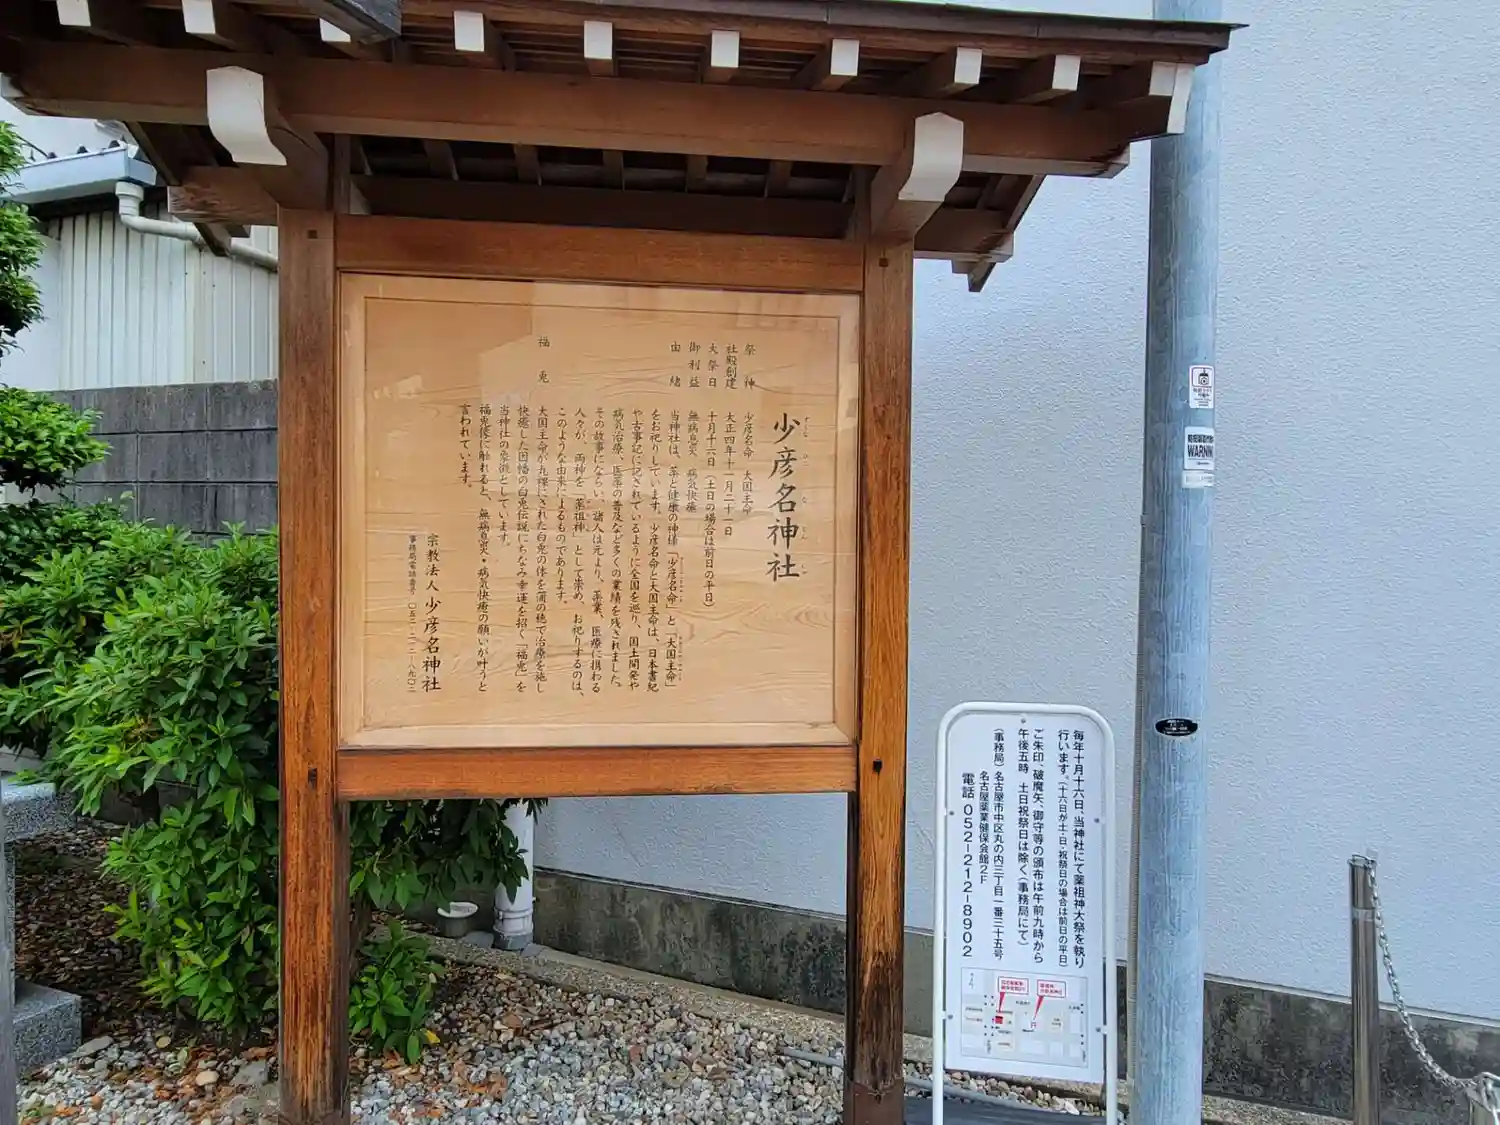 少彦名神社
祭神　少彦名命　大国主命
社殿創建　大正四年十一月二十一日
大祭日　十月十六日（土日の場合は前日の平日）
御利益　無病息災　病気快癒
由緒　当神社は、薬と健康の神様「少彦名命」と「大国主命」
をお祀りしています。少彦名命と大国主命は、日本書紀
や古事記に記されているように全国を巡り、国土開発や
病気治療、医薬の普及など多くの業績を残されました。
その故事にならい、諸人は元より、薬業、医療に携わる
人々が、両神を「薬祖神」として崇め、お祀りするのは、
このような由来によるものであります。
福兎　大国主命が丸裸にされた白兎の体を蒲の穂で治療を施し
快癒した因幡の白兎伝説にちなみ幸運を招く「福兎」を
当神社の象徴としています。
福兎様に触れると、無病息災・病気快癒の願いが叶うと
言われています。
宗教法人　少彦名神社
事務局電話番号　〇五二-二一二-八九〇二
毎年十月十六日、当神社にて薬祖神大祭を執り
行います。（十六日が土・日・祝祭日の場合は前日の平日）
ご朱印、破魔矢、御守等の頒布は午前九時から
午後五時　土日祝祭日は除く（事務局にて）
（事務局）名古屋市中区丸の内三丁目一番三十五号
名古屋薬業健保会館２Ｆ
電話 052-212-8902
WARNING